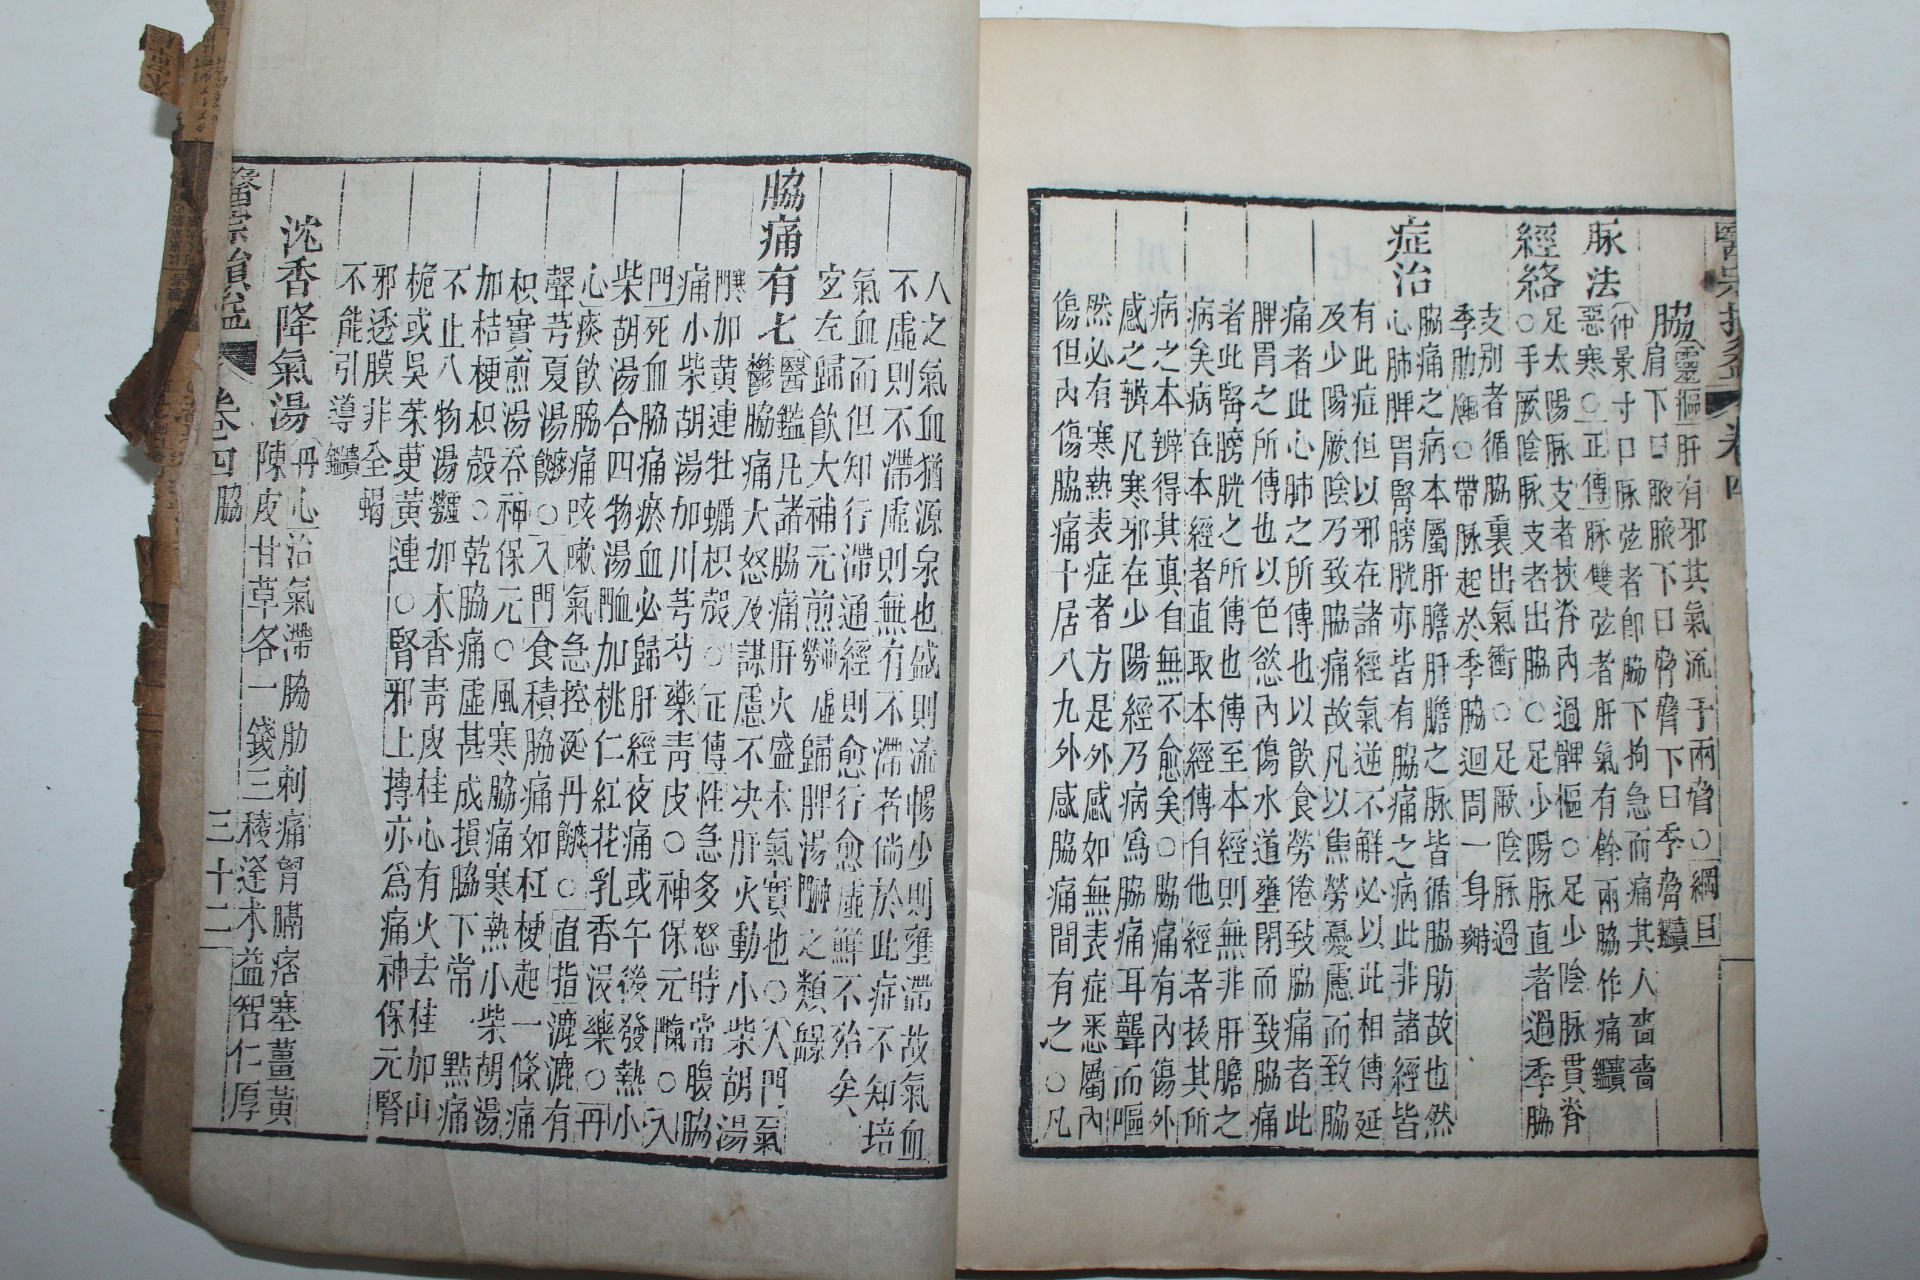 脇肩下曰腋腋下曰脅脅下曰季脅
靈樞肝有邪其氣流于兩脅○綱目
脉法
仲景寸口脉弦者卽脇下拘急而痛其人嗇嗇
惡寒○正傳脉雙弦者肝氣有餘兩脇作痛
經絡
足太陽脉支者挾脊內過髀樞○足少陰脉貫脊
○手厥陰脉支者出脇○足少陽脉直者過季脇
支別者循脇裏出氣衝○足厥陰脉過
季肋○帶脉起於季脇迴周一身
症治
脇痛之病本屬肝膽肝膽之脉皆循脇肋故也然
心肺脾胃腎膀胱亦皆有脇痛之病此非諸經皆
有此症但以邪在諸經氣逆不解必以此相傳延
及少陽厥陰乃致脇痛故凡以焦勞憂慮而致脇
痛者此心肺之所傳也以飮食勞倦致脇痛者此
脾胃之所傳也以色慾內傷水道壅閉而致脇痛
者此腎膀胱之所傳也傳至本經則無非肝膽之
病矣病在本經者直取本經傳自他經者抜其所
病之本辨得其眞自無不愈矣○脇痛有內傷外
感之辨凡寒邪在少陽經乃病爲脇痛耳聾而嘔
然必有寒熱表症者方是外感如無表症悉屬內
傷但內傷脇痛十居八九外感脇痛間有之○凡
人之氣血猶源泉也盛則流暢少則壅滯故氣血
不虛則不滯虛則無有不滯者倘於此症不知培
氣血而但知行滯通經則愈行愈虛鮮不殆矣
宜左歸飮大補元煎虛歸脾湯之類
脇痛有七
醫鑑凡諸脇痛肝火盛木氣實也○入門氣
鬱脇痛大怒及謀慮不决肝火動小柴胡湯
加黄連牡蠣枳殼○正傳性急多怒時常腹脇
痛小柴胡湯加川芎芍藥靑皮○神保元○入
門死血脇痛瘀血必歸肝經夜痛或午後發熱小
柴胡湯合四物湯加桃仁紅花乳香沒藥○丹
心痰飮脇痛咳嗽氣急控涎丹○直指漉漉有
聲芎夏湯○入門食積脇痛如杠梗起一條痛
枳實煎湯呑神保元○風寒脇痛寒熱小柴胡湯
加桔梗枳殼○乾脇痛虛甚成損脇下常一點痛
不止八物湯加木香靑皮桂心有火去桂加山
梔或吳茱萸黄連○腎邪上搏亦爲痛神保元腎
邪透膜非全蝎
不能引導
沈香降氣湯
丹心治氣滯脇肋刺痛胷膈痞塞薑黃
陳皮甘草各一錢三稜蓬朮益智仁厚
卷四 脇
三十二